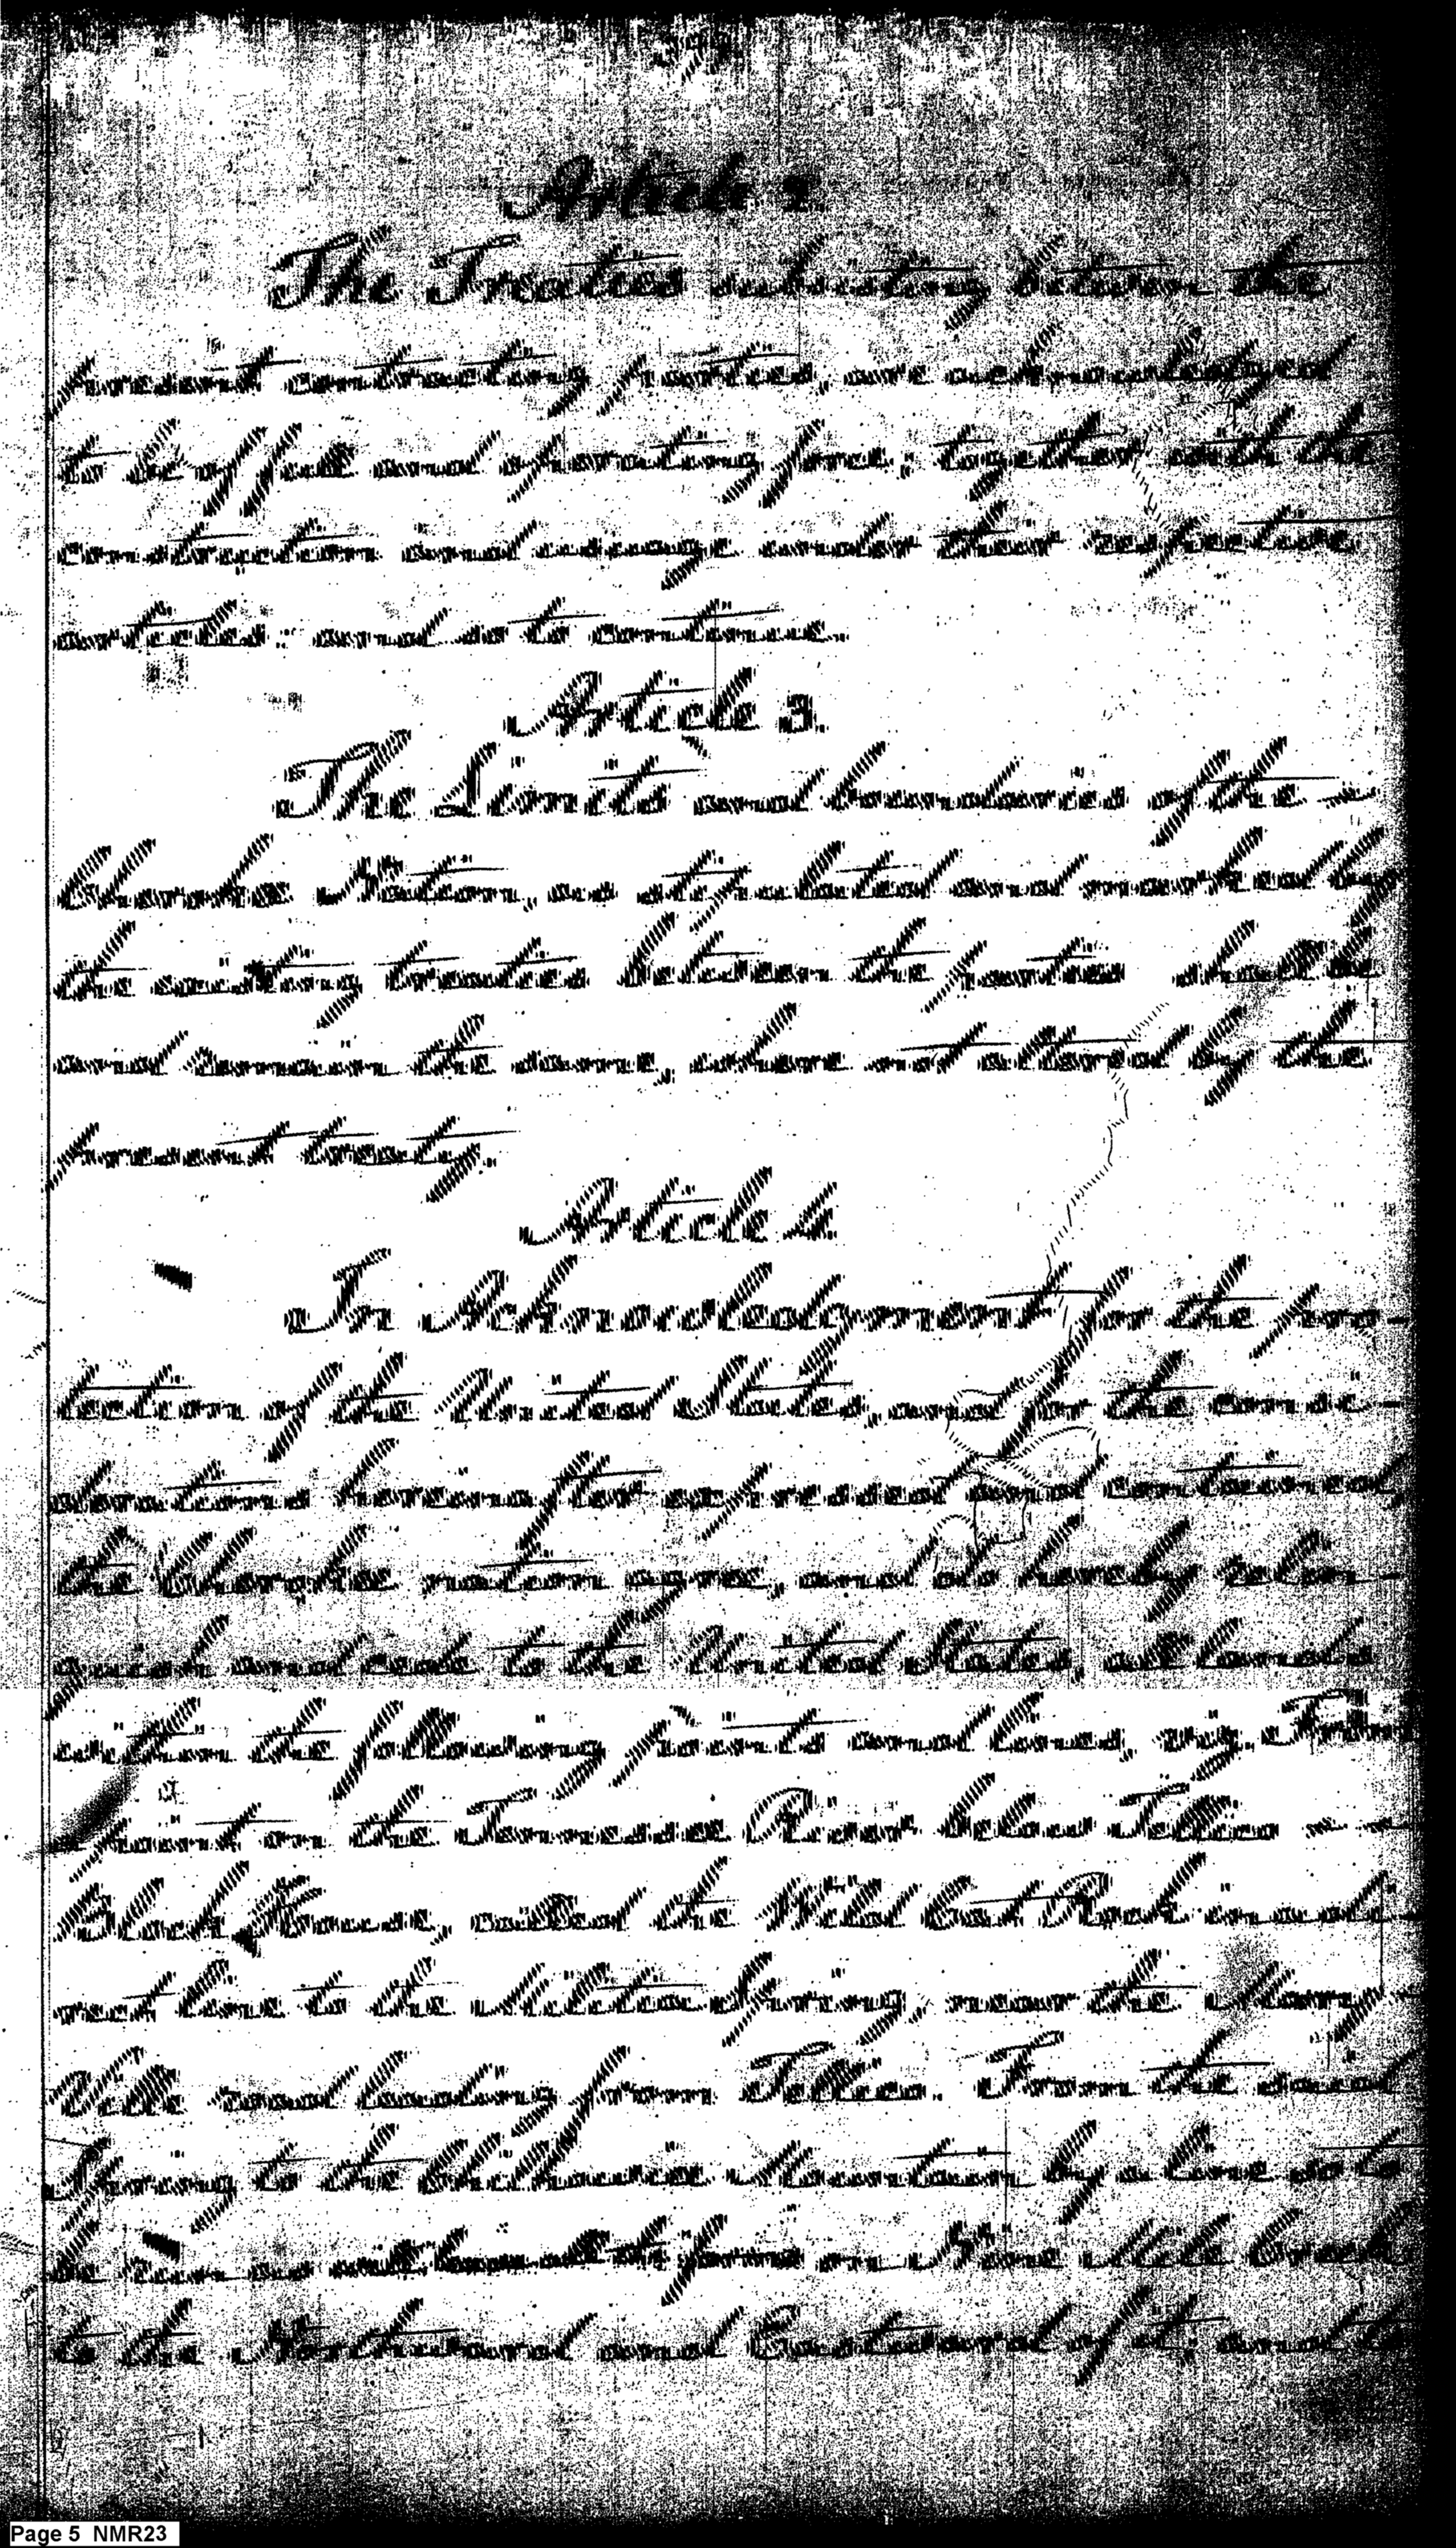 Article 2.
The Treaties subsisting between the
present contracting parties, are acknowledged
to be of full and operating force; together with the
construction and usage under their respective
articles; and so to continue.
Article 3.
The Limits and boundaries of the
Cherokee Nation, as stipulated and marked by
the existing treaties between the parties shall be
and remain the same, where not altered by the
present treaty.
Article 4.
In Acknowledgment for the pro-
tection of the United States, and for the consi-
derations hereinafter expressed and contained,
the Cherokee nation agree, and do hereby relin-
quish and cede to the United States, all the lands
within the following points and lines, viz. From
a point on the Tennessee River, below Tellico
Block-House, called the Wild Cat Rock, in a di-
rect line to the Militia Spring, near the Mary-
Ville road leading from Tellico. From the said
Spring to the Chilhowie Mountain by a line so to
be run as will leave all the farms on Nine Mile Creek
to the Northward and Eastward of it; and to
Page 5 NMR23